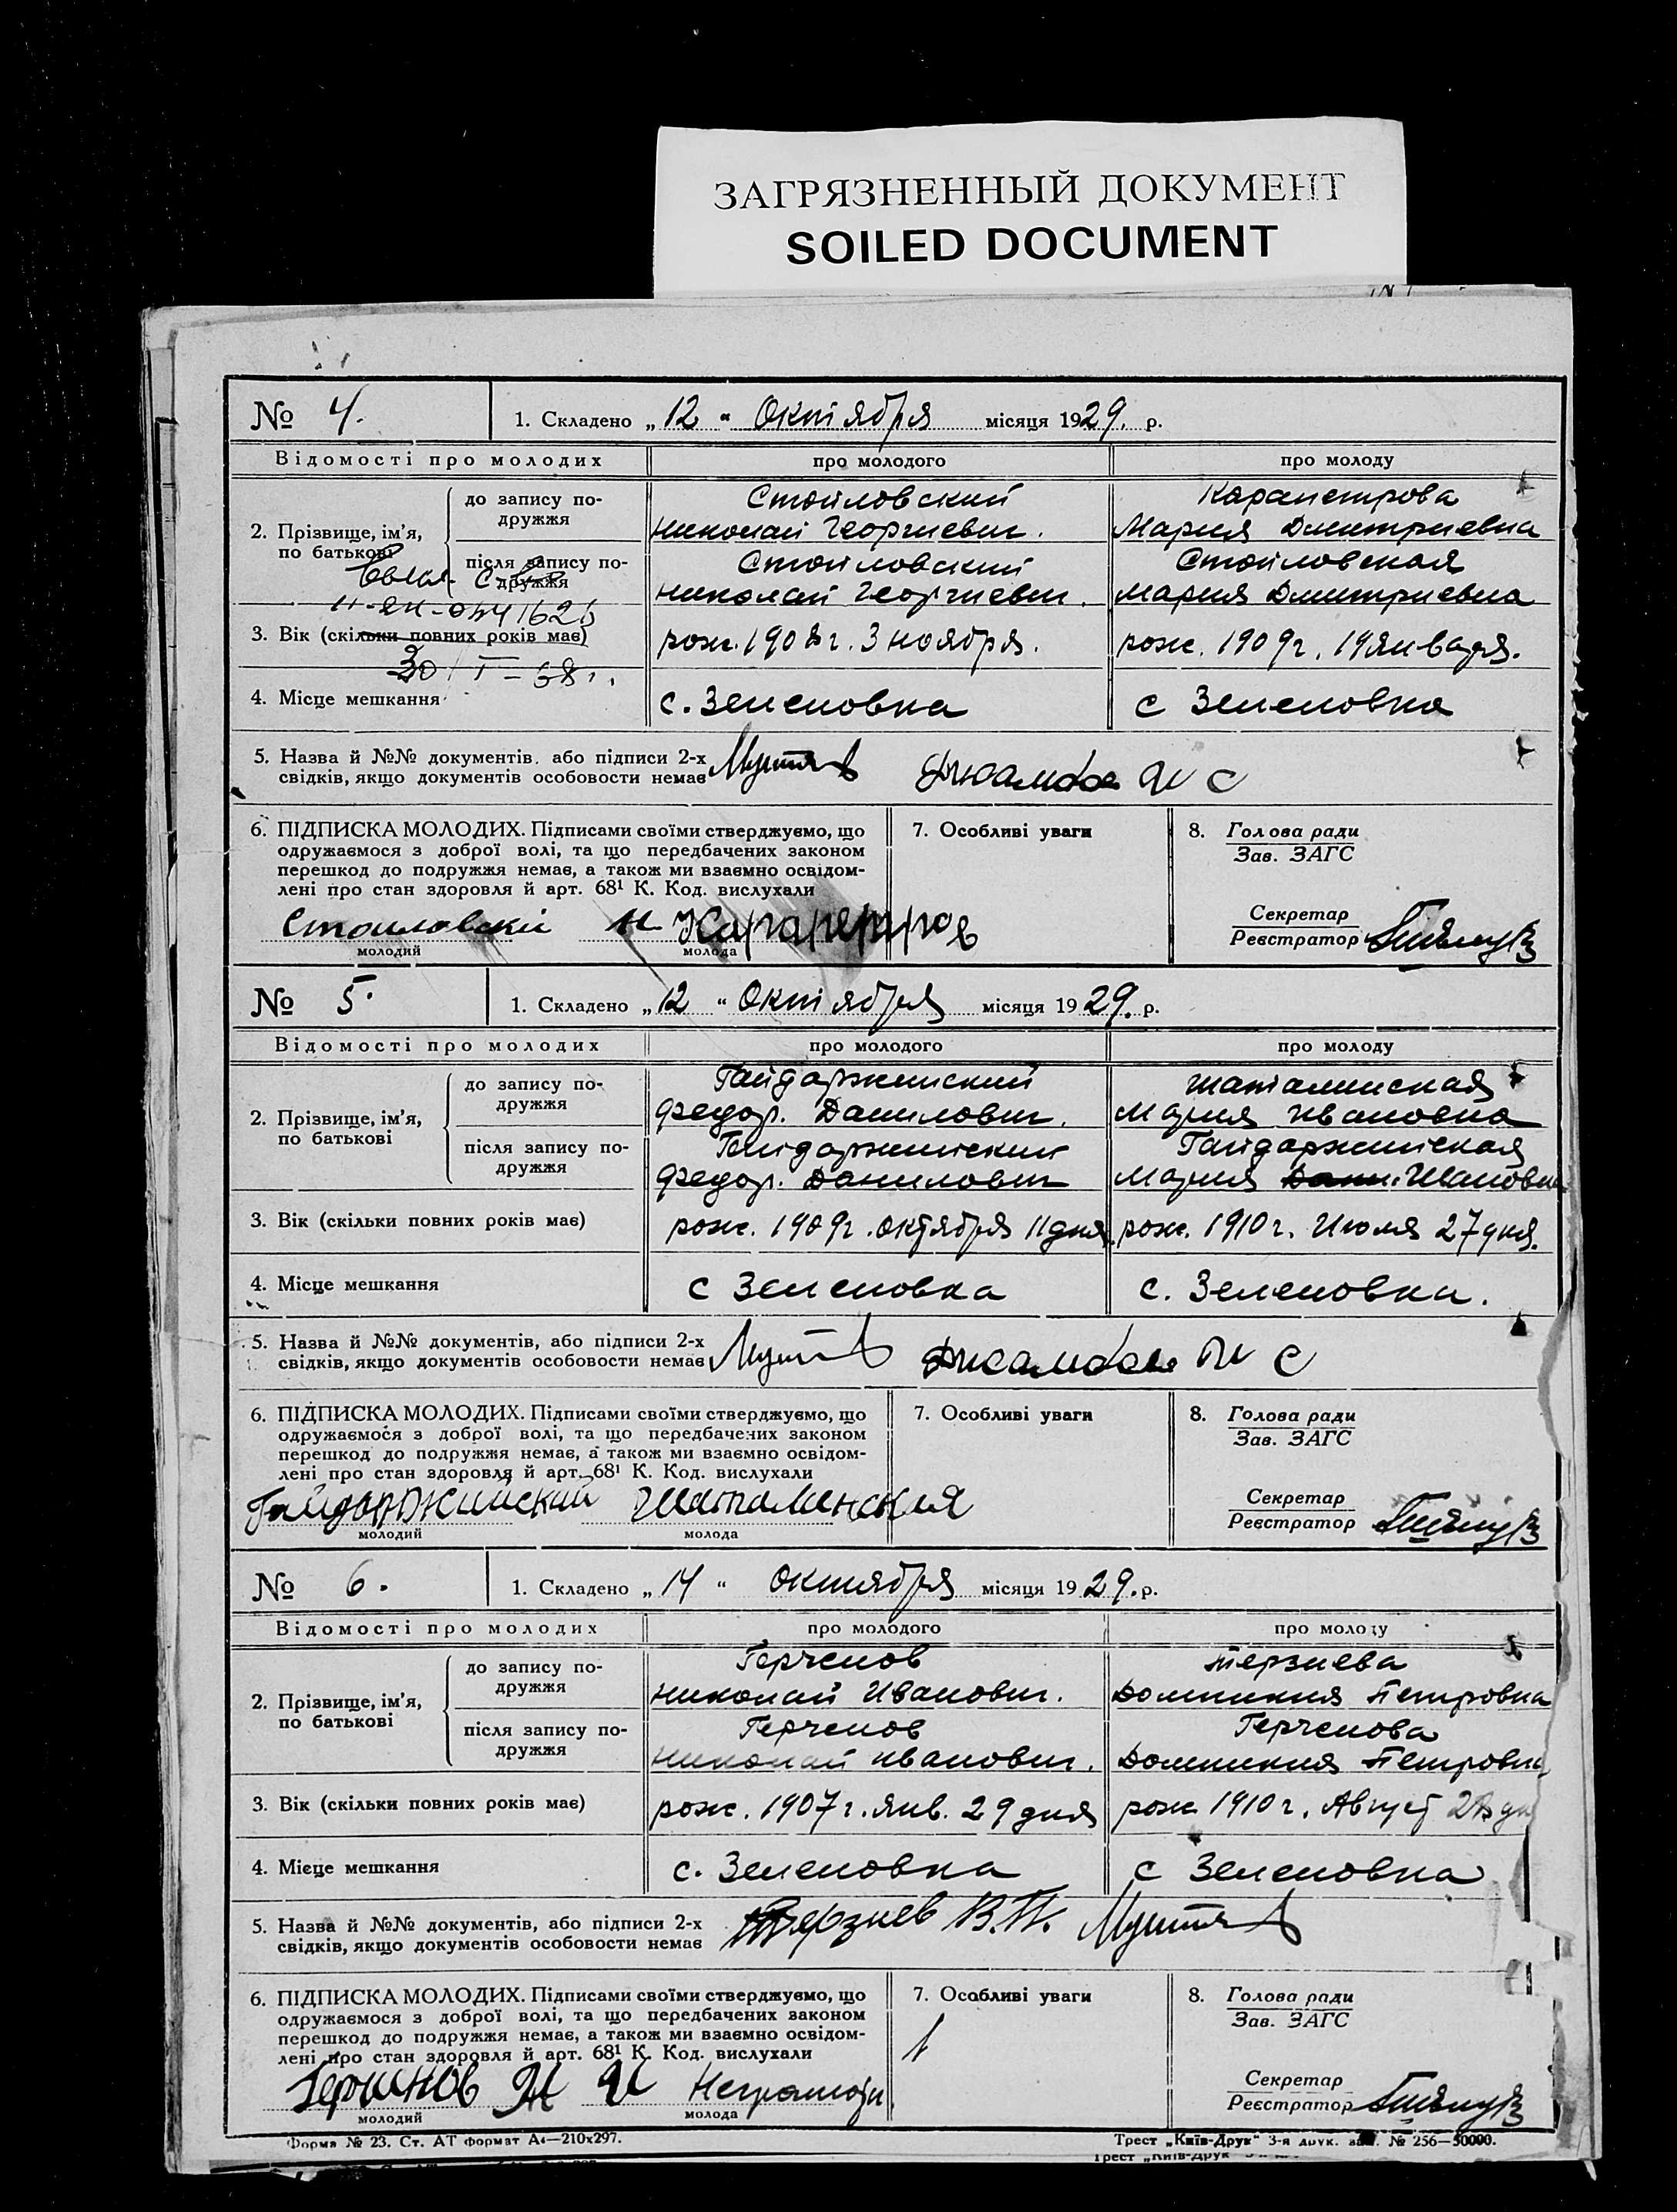 ЗАГРЯЗНЕННЫЙ ДОКУМЕНТ
SOILED DOCUMENT
№ 4. 1. Складено „12“ Октября місяця 1929. р.
Відомості про молодих про молодого про молоду
2. Прізвище, ім’я, по батькові
до запису подружжя
Стоиловский Карапетрова
Николай Георгиевич. Мария Дмитриевна
після запису подружжя
Стоиловский Стоиловская
Николай Георгиевич. Мария Дмитриевна
3. Вік (скільки повних років має) рож. 1908 г. 3 ноября. рож. 1909 г. 19 января.
30/I-68 г.
4. Місце мешкання с. Зеленовка с Зеленовка
5. Назва й №№ документів, або підписи 2-х
свідків, якщо документів особовости немає
6. ПІДПИСКА МОЛОДИХ. Підписами своїми стверджуємо, що 7. Особливі уваги 8. Голова ради
одружаємося з доброї волі, та що передбачених законом Зав. ЗАГС
перешкод до подружжя немає, а також ми взаємно освідом-
лені про стан здоровля й арт. 68¹ К. Код. вислухали
Секретар
Стоиловский Н Реєстратор
молодий молода
№ 5. 1. Складено „12“ Октября місяця 1929. р.
Відомості про молодих про молодого про молоду
2. Прізвище, ім’я, по батькові
до запису подружжя
Гайдаржийский Шаталинская
Федор. Данилович. Мария Ивановна
після запису подружжя
Гайдаржийский Гайдаржийская
Федор. Данилович Мария Дани. Ивановна
3. Вік (скільки повних років має) рож. 1909 г. октября 11 дня. рож. 1910 г. Июля 27 дня.
4. Місце мешкання с Зеленовка с. Зеленовка.
5. Назва й №№ документів, або підписи 2-х
свідків, якщо документів особовости немає
6. ПІДПИСКА МОЛОДИХ. Підписами своїми стверджуємо, що 7. Особливі уваги 8. Голова ради
одружаємося з доброї волі, та що передбачених законом Зав. ЗАГС
перешкод до подружжя немає, а також ми взаємно освідом-
лені про стан здоровля й арт. 68¹ К. Код. вислухали
Секретар
Гайдаржийский Шаталинская Реєстратор
молодий молода
№ 6. 1. Складено „14“ октября місяця 1929. р.
Відомості про молодих про молодого про молоду
2. Прізвище, ім’я, по батькові
до запису подружжя
Герченов Терзиева
Николай Иванович. Домникия Петровна
після запису подружжя
Герченов Герченова
Николай Иванович. Домникия Петровна
3. Вік (скільки повних років має) рож. 1907 г. янв. 29 дня рож 1910 г. Август
4. Місце мешкання с. Зеленовка с Зеленовка
5. Назва й №№ документів, або підписи 2-х Терзиев В.П.
свідків, якщо документів особовости немає
6. ПІДПИСКА МОЛОДИХ. Підписами своїми стверджуємо, що 7. Особливі уваги 8. Голова ради
одружаємося з доброї волі, та що передбачених законом Зав. ЗАГС
перешкод до подружжя немає, а також ми взаємно освідом-
лені про стан здоровля й арт. 68¹ К. Код. вислухали
Секретар
Реєстратор
молодий молода
Форма № 23. Ст. АТ формат А₄—210х297. Трест „Київ-Друк“ 3-я друк. зам. № 256—50000.